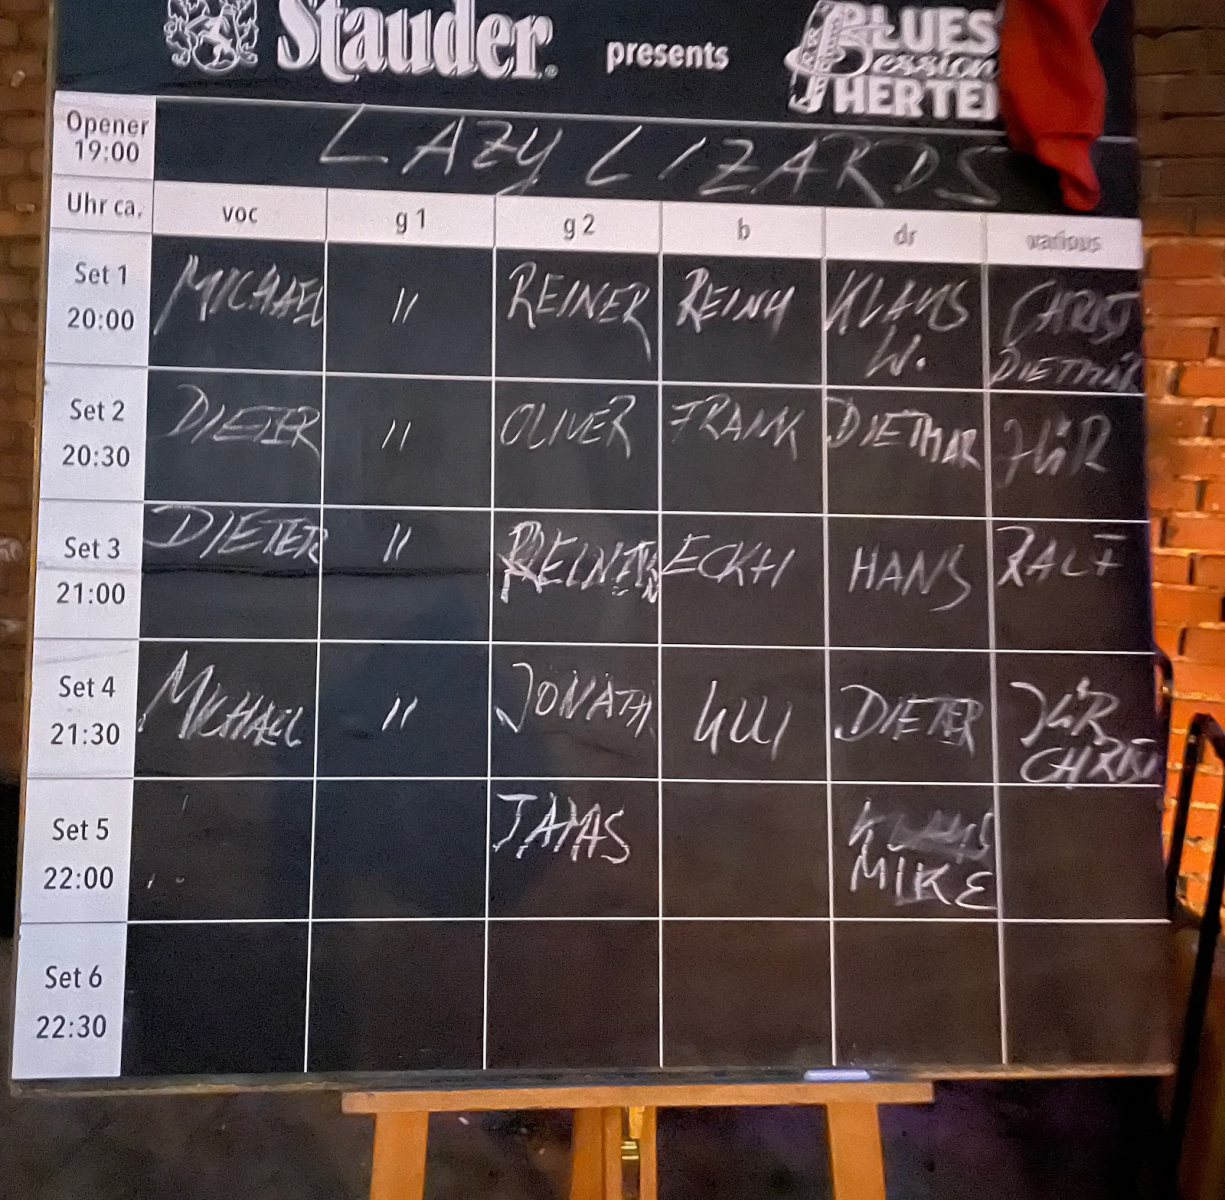 Stauder® presents BLUES Session HERTE
Opener 19:00 LAZY LIZARDS
Uhr ca. voc g 1 g 2 b dr various
Set 1 MICHAEL // REINER REINH KLAUS CHRIST
20:00 W. DIETMAR
Set 2 DIETER // OLIVER FRANK DIETMAR
20:30
Set 3 DIETER // REINER ECKHI HANS RALF
21:00
Set 4 MICHAEL // JONATH ULLI DIETER
21:30 CHRIS
Set 5 JAMAS KLAUS
22:00 MIKE
Set 6
22:30